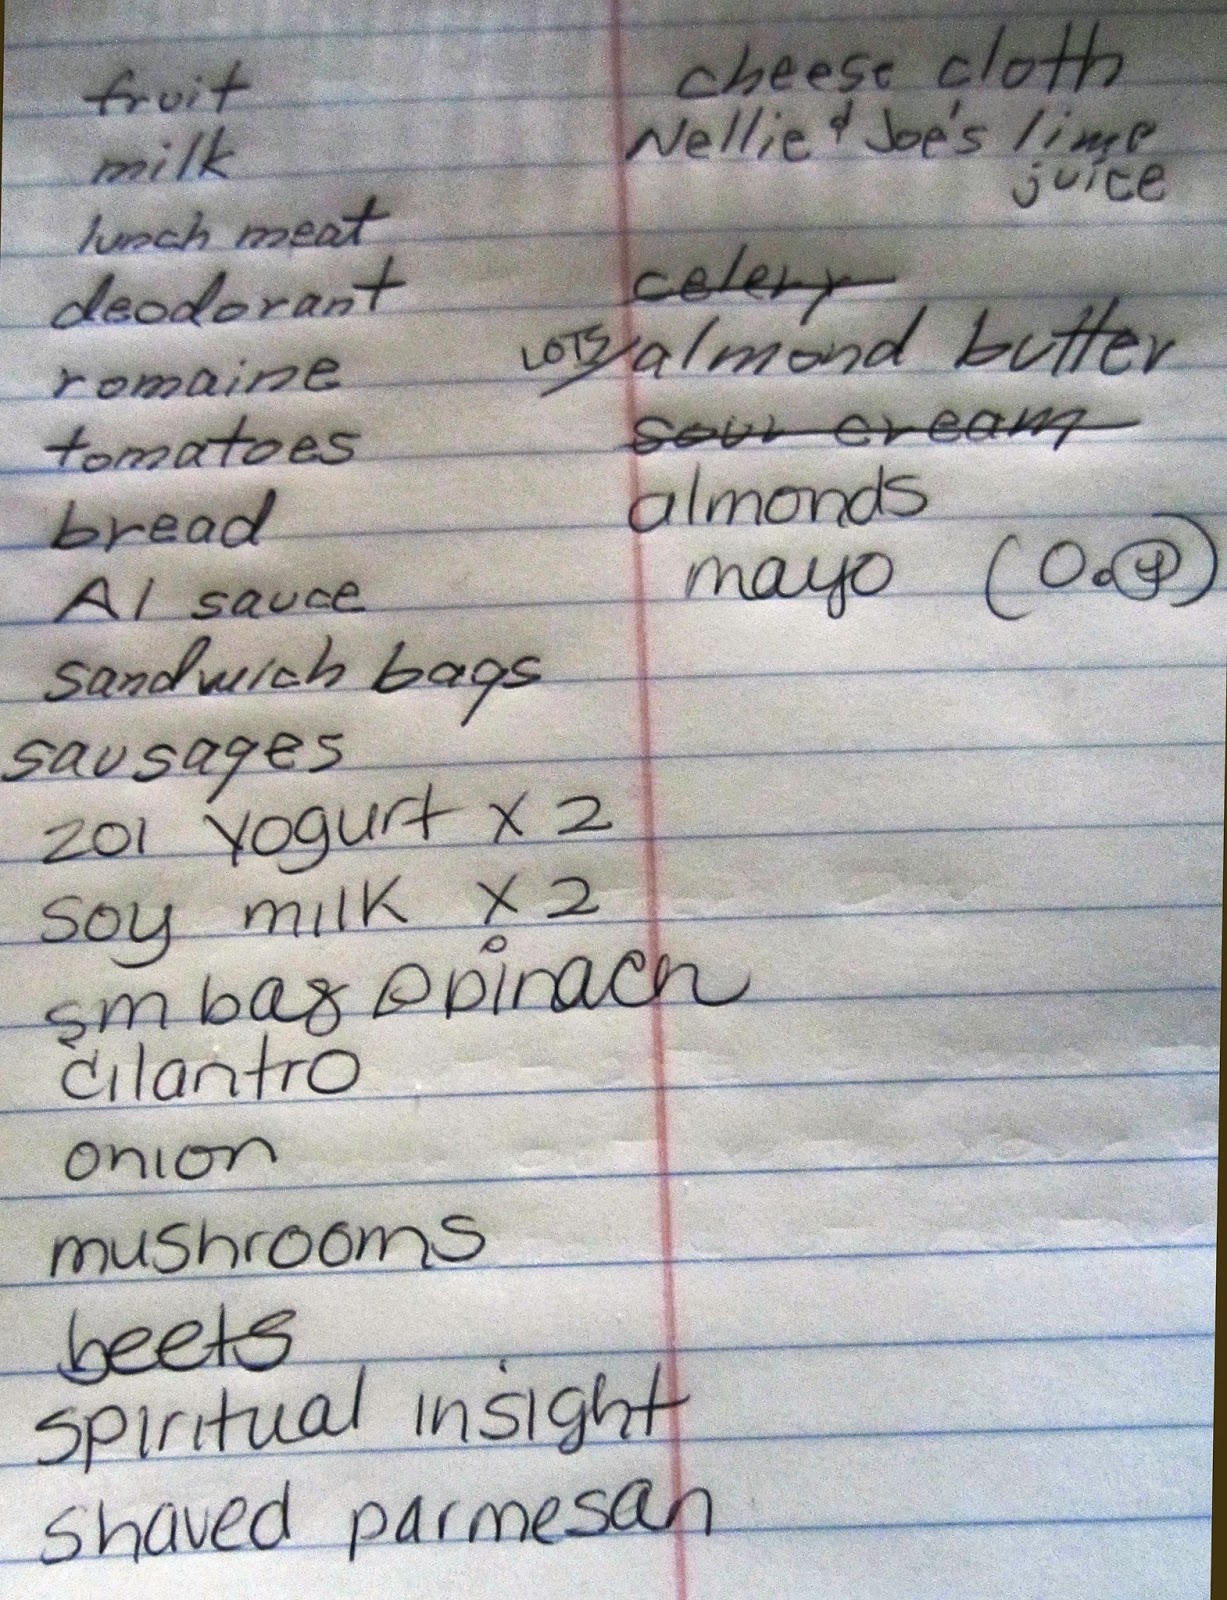 fruit
milk
lunch meat
deodorant
romaine
tomatoes
bread
A1 sauce
sandwich bags
sausages
zoi yogurt x 2
soy milk x 2
sm bag spinach
cilantro
onion
mushrooms
beets
spiritual insight
shaved parmesan
cheese cloth
Nellie & Joe's lime
juice
celery
LOTS almond butter
sour cream
almonds
mayo